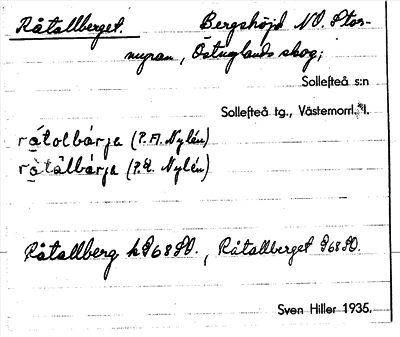 Råtallberget. Bergshöjd NO. Stor-
myran, Östnylands skog;
Sollefteå s:n
Sollefteå tg., Västernorrl. l.
råtolbárja (P.A. Nylén)
råtålbárja (P.E. Nylén)
Råtallberg k968SO., Råtallberget 968SO.
Sven Hiller 1935.